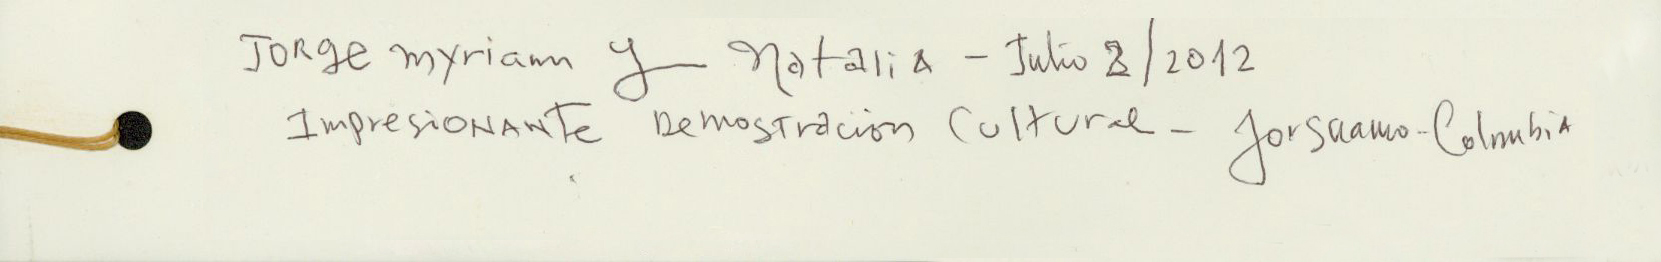 Jorge myriam y Natalia - Julio 8/2012
Impresionante Demostracion Cultural - Colombia